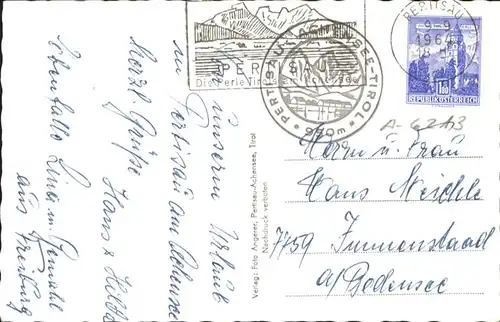 aus unserem Urlaub
in Pertisau am Achensee
Herzl. Grüße Hans + Hilde
Ebenfalls Lina u. Gemahl
aus Freiburg
PERTISAU
Die Perle Tirols am Achensee
PERTISAU ACHENSEE-TIROL
930m
PERTISAU
-9-9
1964
1.80
REPUBLIK ÖSTERREICH
A-6213
Herrn u. Frau
Hans
7759 Immenstaad
a/Bodensee
Verlag: Foto Angerer, Pertisau-Achensee, Tirol
Nachdruck verboten